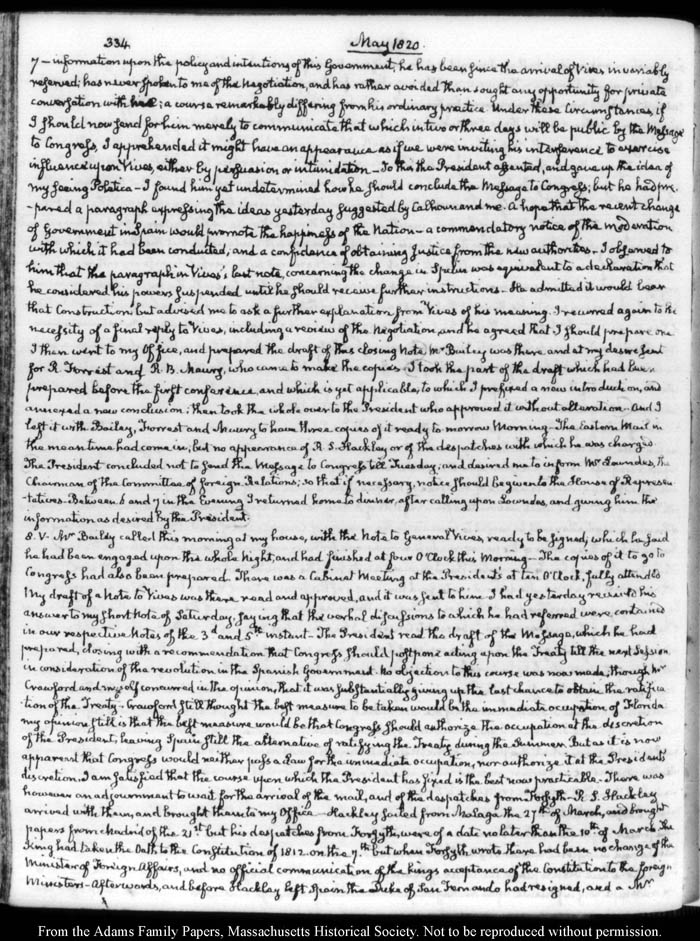 334
May 1820.
7 – information upon the policy and intentions of this Government; he has been since the arrival of Vives invariably
reserved; has never spoken to me of the negotiation, and has rather avoided than sought any opportunity for private
conversation with me; a course remarkably differing from his ordinary practice. Under these circumstances, if
I should now send for him merely to communicate that which in two or three days will be public by the Message
to Congress, I apprehended it might have an appearance as if we were inviting his interference to exercise
influence upon Vives, either by persuasion or intimidation – To this the President assented, and gave up the idea of
my seeing Poletica – I found him yet undetermined how he should conclude the Message to Congress; but he had pre-
-pared a paragraph expressing the ideas yesterday suggested by Calhoun and me. A hope that the recent change
of Government in Spain would promote the happiness of the Nation – a commendatory notice of the moderation
with which it had been conducted, and a confidence of obtaining justice from the new authorities – I observed to
him that the paragraph in Vives's last note, concerning the change in Spain was equivalent to a declaration that
he considered his powers suspended until he should receive further instructions – He admitted it would bear
that Construction but advised me to ask a further explanation from Vives of his meaning. I recurred again to the
necessity of a final reply to Vives, including a review of the Negotiation, and he agreed that I should prepare one
I then went to my Office, and prepared the draft of this closing Note. Mr Bailey was there and at my desire sent
for R. Forrest and R. B. Maury, who came to make the copies. I took the part of the draft which had been
prepared before the first conference, and which is yet applicable, to which I prefixed a new introduction, and
annexed a new conclusion; then took the whole over to the President who approved it without alteration – And I
left it with Bailey, Forrest and Maury to have three copies of it ready to morrow Morning – The Eastern Mail in
the mean time had come in, but no appearance of R. S. Hackley or of the despatches with which he was charged
The President concluded not to send the Message to Congress till Tuesday; and desired me to inform Mr Lowndes, the
Chairman of the Committee of foreign Relations; so that if necessary, notice should be given to the House of Represen-
-tatives. Between 6 and 7 in the Evening I returned home to dinner, after calling upon Lowndes, and giving him the
information as desired by the President.
8. V. Mr Bailey called this morning at my house, with the Note to General Vives, ready to be signed; which he said
he had been engaged upon the whole Night, and had finished at four O'Clock this Morning – The copies of it to go to
Congress had also been prepared. There was a Cabinet Meeting at the President's at ten O'Clock, fully attended
My draft of a Note to Vives was there read and approved, and it was sent to him. I had yesterday received his
answer to my short Note of Saturday, saying that the verbal discussions to which he had referred were contained
in our respective Notes of the 3d and 5th instant – The President read the draft of the Message, which he had
prepared, closing with a recommendation that Congress should postpone acting upon the Treaty till the next Session
in consideration of the revolution in the Spanish Government. No objection to this course was now made, though Mr
Crawford and myself concurred in the opinion, that it was substantially giving up the last chance to obtain the ratifica-
tion of the Treaty – Crawford still thought the best measure to be taken would be the immediate occupation of Florida
my opinion still is that the best measure would be that Congress should authorize the occupation at the discretion
of the President, leaving Spain still the alternative of ratifying the Treaty during the Summer. But as it is now
apparent that Congress would neither pass a Law for the immediate occupation, nor authorize it at the President's
discretion, I am satisfied that the course upon which the President has fixed is the best now practicable – There was
however an adjournment to wait for the arrival of the mail, and of the despatches from Forsyth – R. S. Hackley
arrived with them, and brought them to my Office – Hackley sailed from Malaga the 27th of March, and brought
papers from Madrid of the 21st but his despatches from Forsyth, were of a date no later than the 10th of March The
King had taken the Oath to the Constitution of 1812 on the 9th but when Forsyth wrote there had been no change of the
Minister of Foreign Affairs, and no official communication of the kings acceptance of the Constitution to the foreign
Ministers – Afterwards, and before Hackley left Spain the Duke of San Fernando had resigned, and a Mr
From the Adams Family Papers, Massachusetts Historical Society. Not to be reproduced without permission.